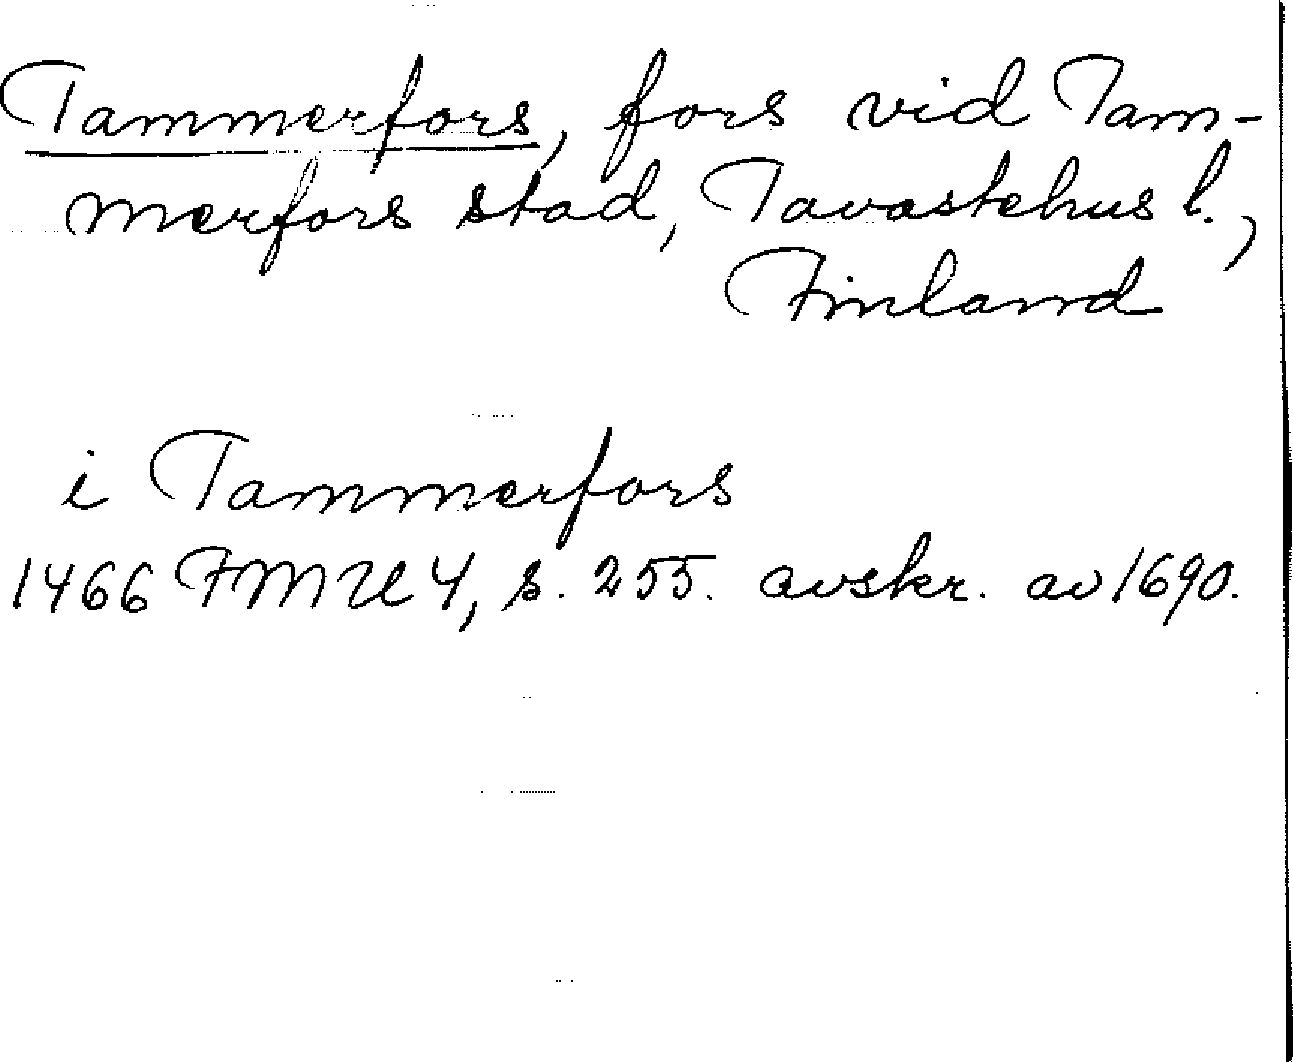 Tammerfors, fors vid Tam-
merfors stad, Tavastehus l.,
Finland
i Tammerfors
1466 FMU 4, s. 255. avskr. av 1690.